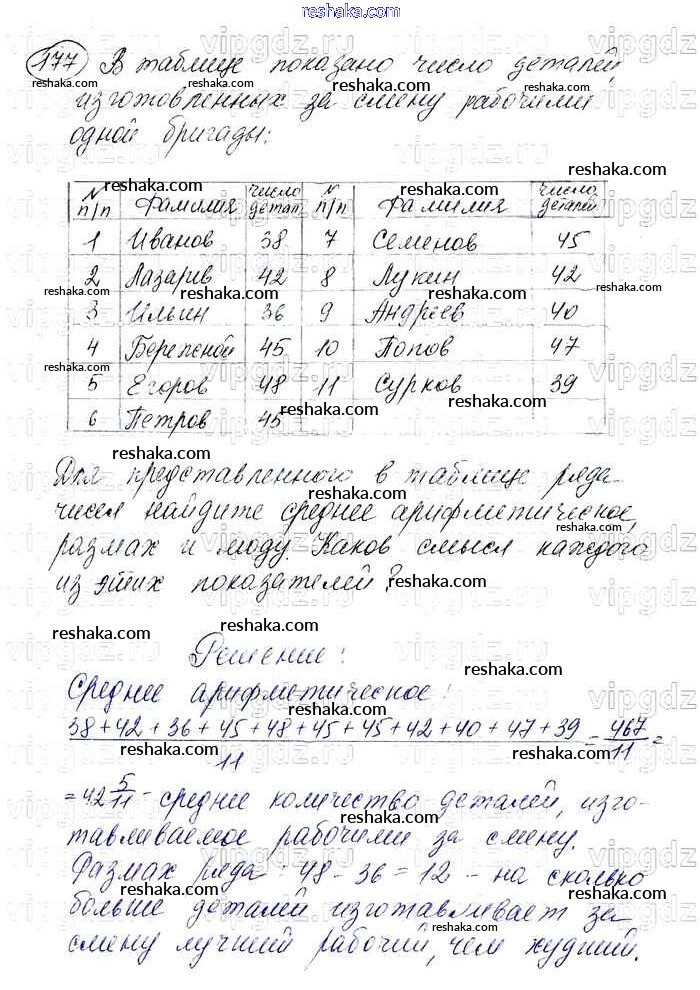 177 В таблице показано число деталей,
изготовленных за смену рабочими
одной бригады:
N п/п Фамилия число детал. N п/п Фамилия число деталей
1 Иванов 38 7 Семенов 45
2 Лазарев 42 8 Лукин 42
3 Ильин 36 9 Андреев 40
4 Бережной 45 10 Попов 47
5 Егоров 48 11 Сурков 39
6 Петров 45
Для представленного в таблице ряда
чисел найдите среднее арифметическое,
размах и моду. Каков смысл каждого
из этих показателей?
Решение:
Среднее арифметическое:
38+42+36+45+48+45+45+42+40+47+39 / 11 = 467/11 =
= 42 5/11 - среднее количество деталей, изго-
тавливаемое рабочими за смену.
Размах ряда: 48 - 36 = 12 - на сколько
больше деталей изготавливает за
смену лучший рабочий, чем худший.
reshaka.com
vipgdz.ru